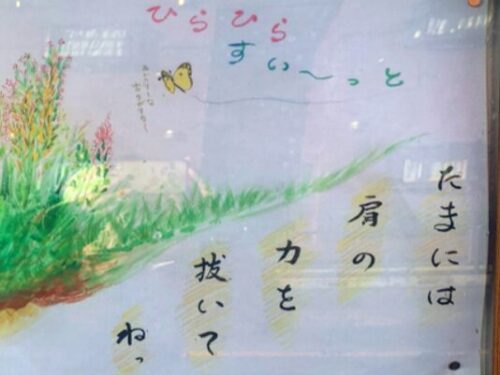 ひらひら
すい〜っと
たまには
肩の
力を
抜いて
ねっ